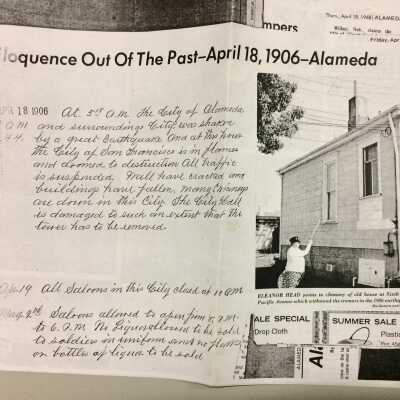 Eloquence Out Of The Past—April 18, 1906—Alameda
18 1906 At 5 A M The City of Alameda
A M and surrounding City was shaken
by a great Earthquake and at this hour
the City of San Francisco is in flames
and doomed to destruction All traffic
is suspended. Wall have cracked and
buildings have fallen, many Chimneys
are down in this City The City Hall
is damaged to such an extent that the
tower has to be removed
19 All Saloons in this City closed at 10 AM
Saloons allowed to open from 8 A.M
to 6 P.M No Liquor allowed to be sold
to soldiers in uniform and no flasks
or bottles of liquor to be sold
ELEANOR HEAD points to chimney of old house at
Pacific Avenue which withstood the tremors in the 1906
mpers
Thurs., April 18, 1968
Friday, Apr
ALE SPECIAL
Drop Cloth
SUMMER SALE
Plastic
ALAMED
Al